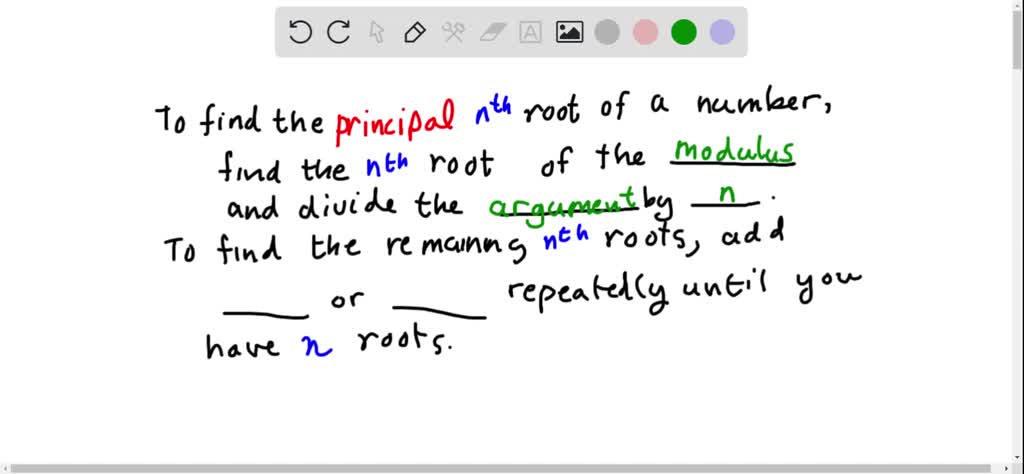 To find the principal nth root of a number,
find the nth root of the modulus
and divide the argument by n.
To find the remainng nth roots, add
____ or ____ repeatedly until you
have n roots.